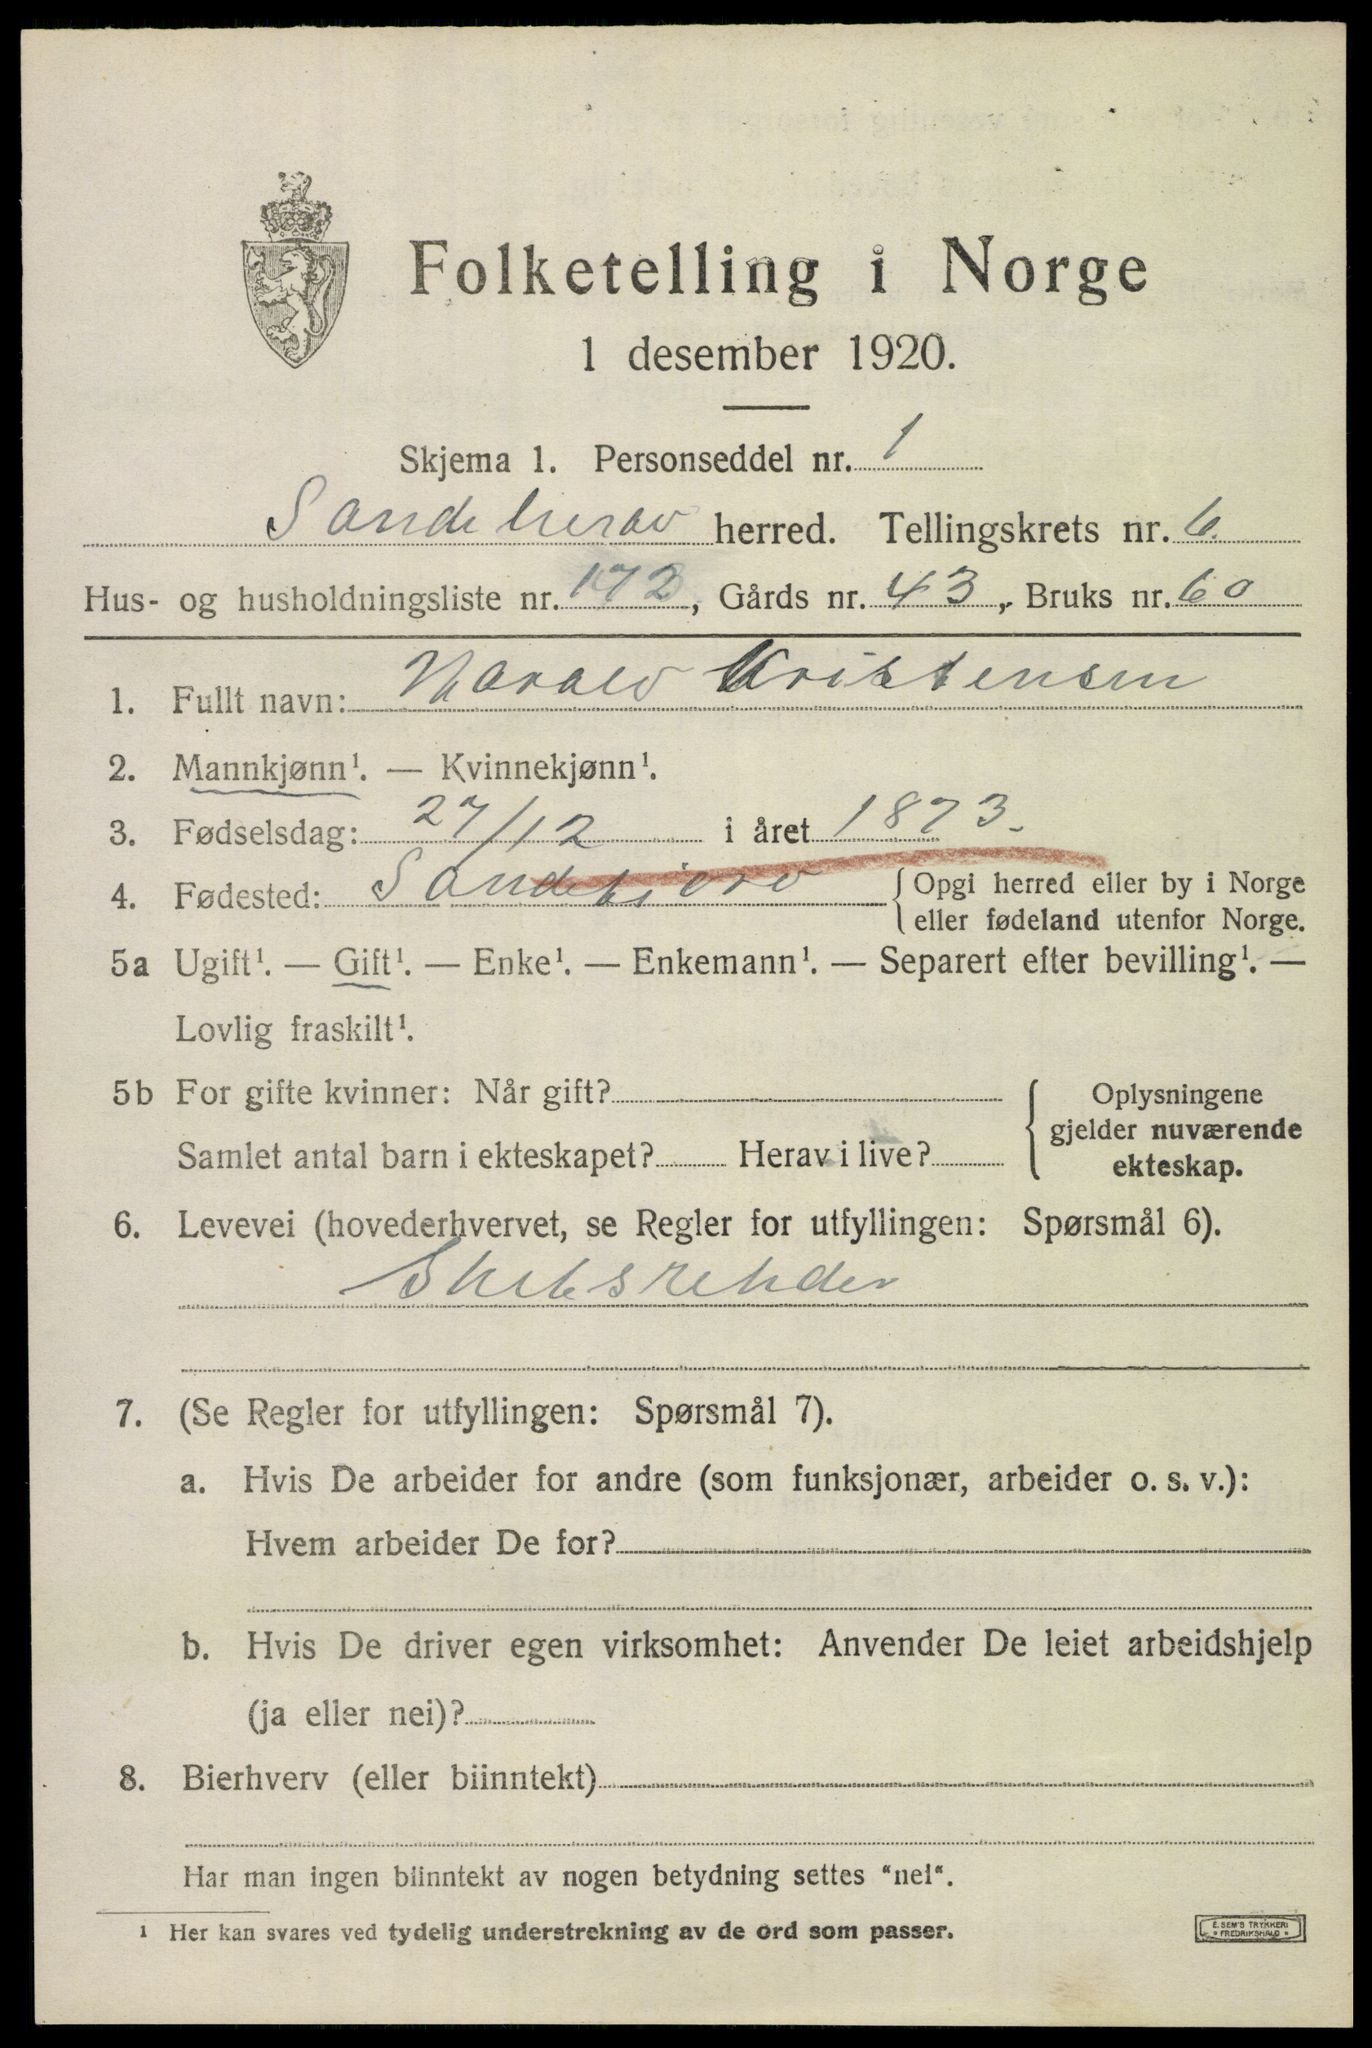 Folketelling i Norge
1 desember 1920.
Skjema 1. Personseddel nr. 1
Sandeherav herred. Tellingskrets nr. 6.
Hus- og husholdningsliste nr. 172, Gårds nr. 43, Bruks nr. 60
1. Fullt navn: Harald Kristensen
2. Mannkjønn¹. — Kvinnekjønn¹.
3. Fødselsdag: 27/12 i året 1873.
4. Fødested: Sandefjord { Opgi herred eller by i Norge
eller fødeland utenfor Norge.
5a Ugift¹. — Gift¹. — Enke¹. — Enkemann¹. — Separert efter bevilling¹. —
Lovlig fraskilt¹.
5b For gifte kvinner: Når gift? { Oplysningene
gjelder nuværende
Samlet antal barn i ekteskapet? Herav i live? ekteskap.
6. Levevei (hovederhvervet, se Regler for utfyllingen: Spørsmål 6).
Skibsrehder
7. (Se Regler for utfyllingen: Spørsmål 7).
a. Hvis De arbeider for andre (som funksjonær, arbeider o. s. v.):
Hvem arbeider De for?
b. Hvis De driver egen virksomhet: Anvender De leiet arbeidshjelp
(ja eller nei)?
8. Bierhverv (eller biinntekt)
Har man ingen biinntekt av nogen betydning settes "nei".
¹ Her kan svares ved tydelig understrekning av de ord som passer.
E. SEM'S TRYKKERI
* FREDRIKSHALD *